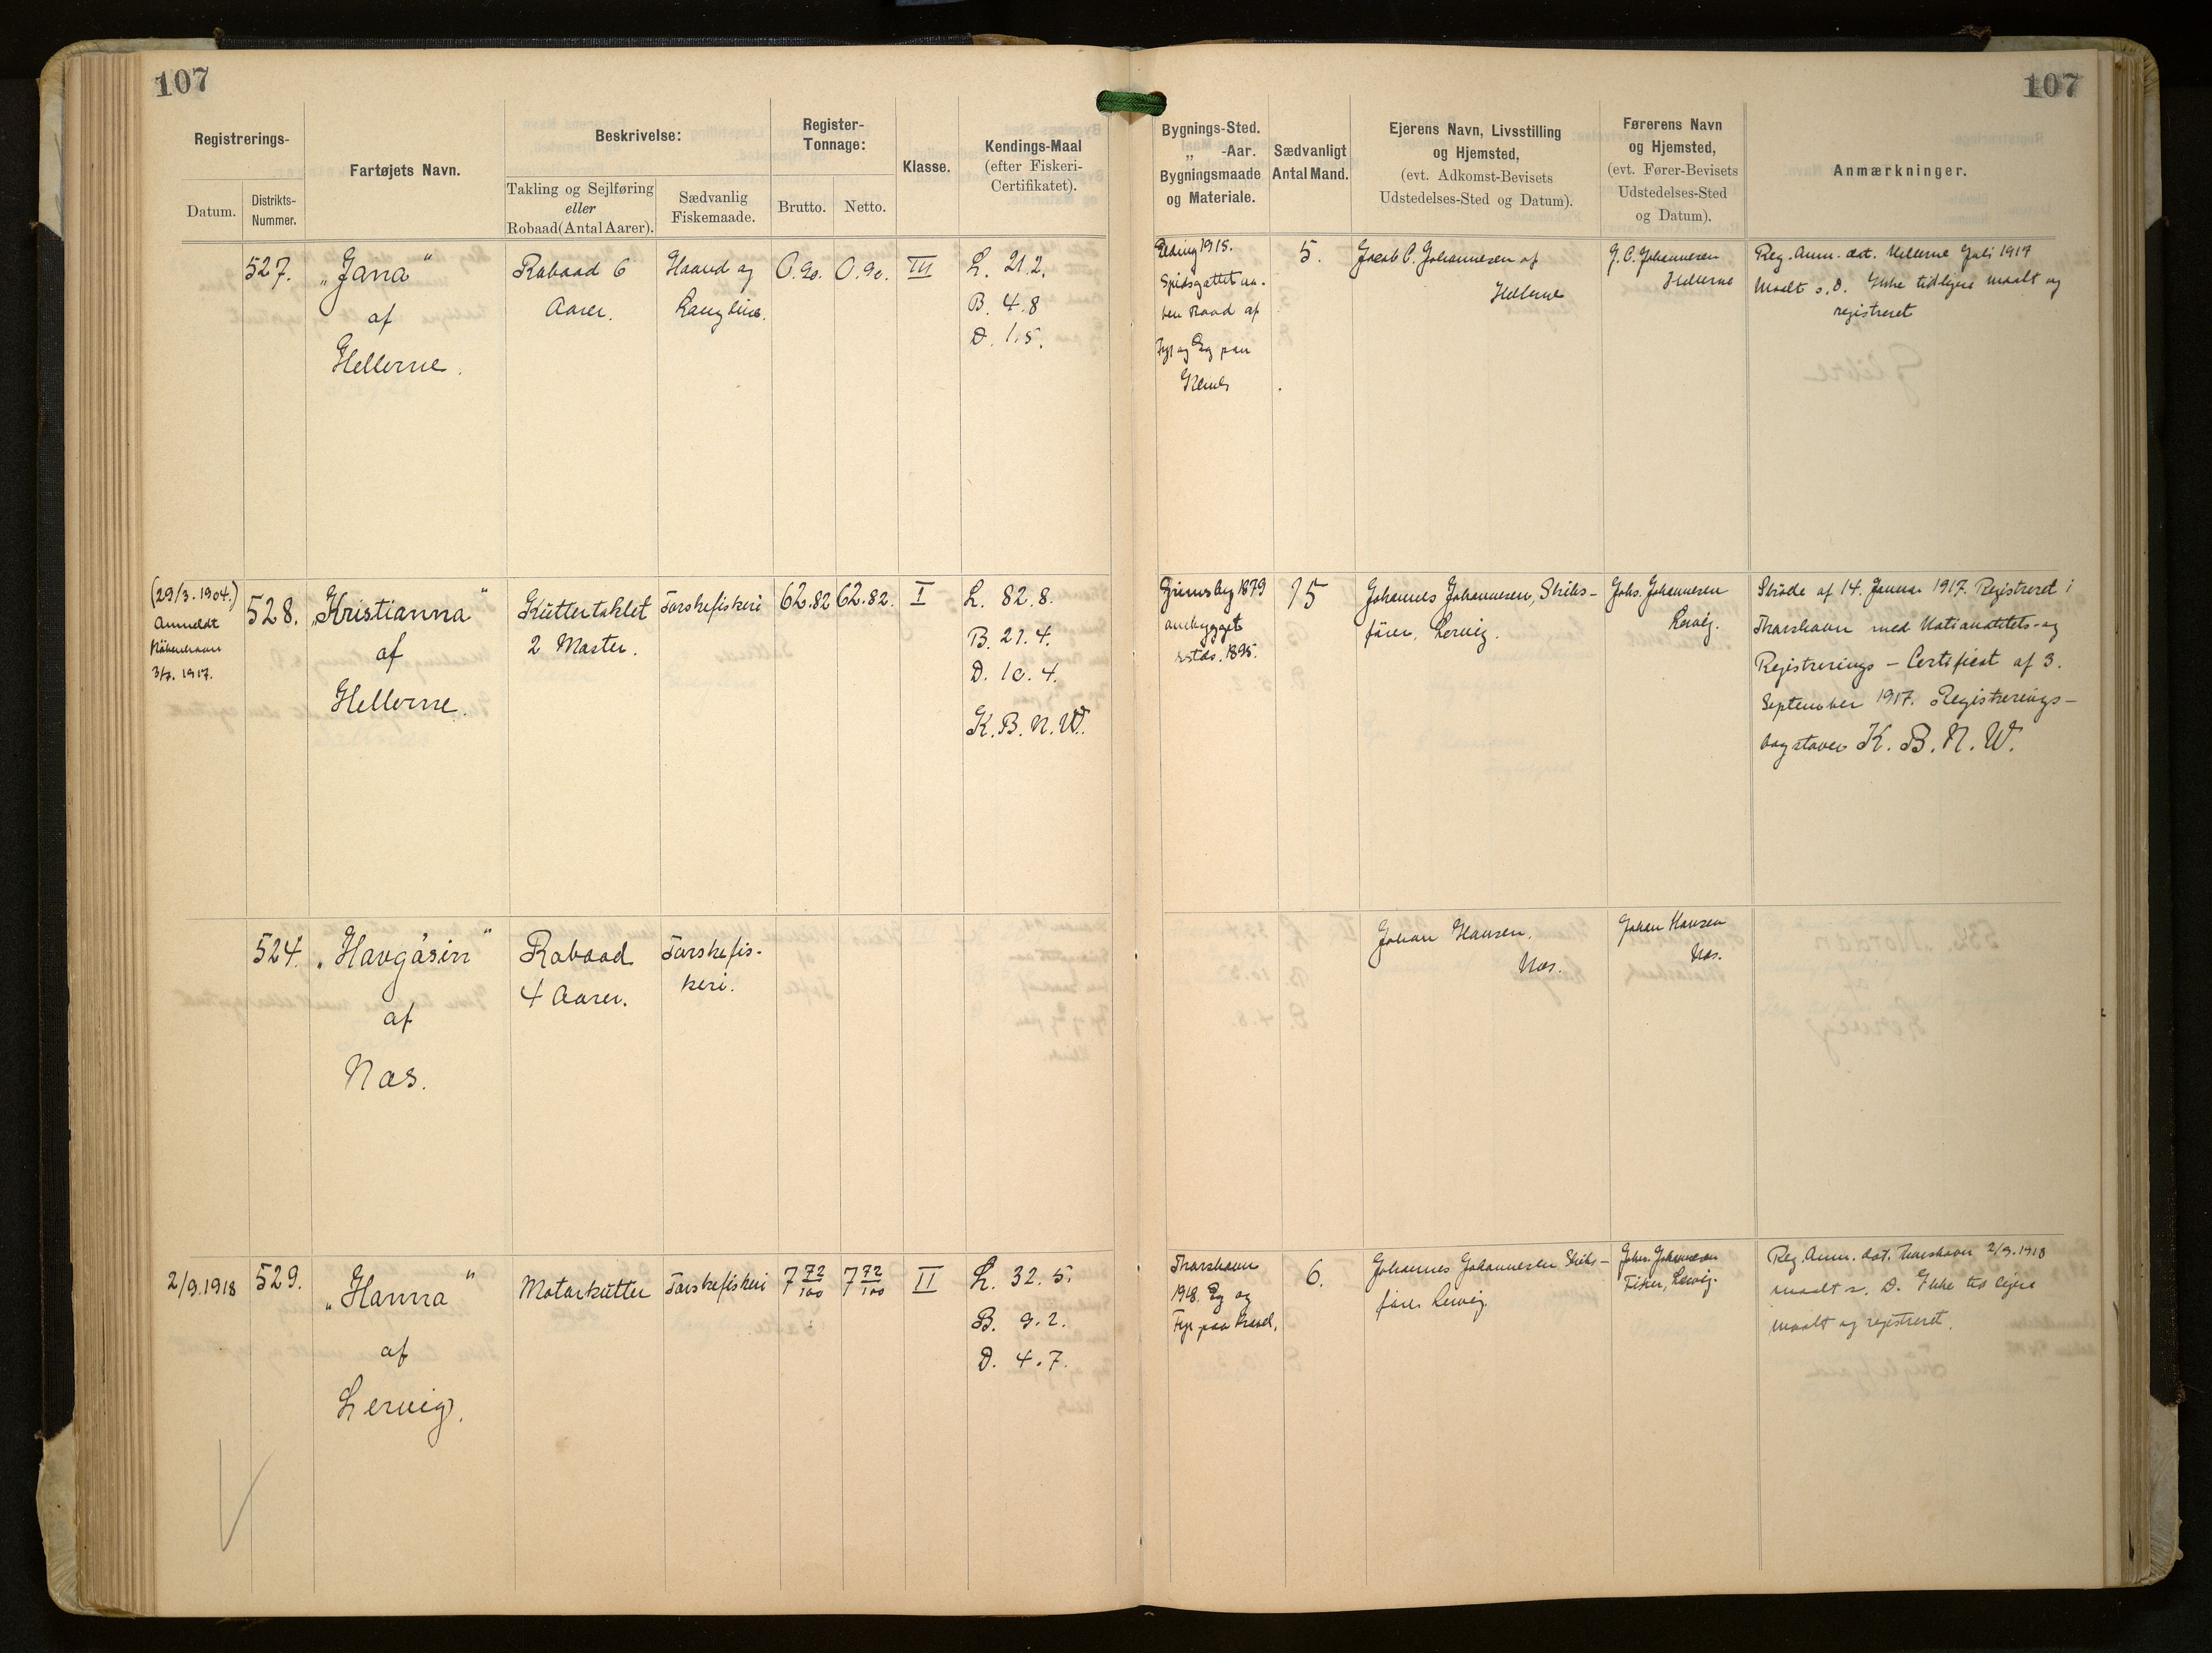 107
107
Registrerings-
Datum.
Distrikts-
Nummer.
Fartøjets Navn.
Beskrivelse:
Takling og Sejlføring
eller
Robaad (Antal Aarer).
Sædvanlig
Fiskemaade.
Register-
Tonnage:
Brutto.
Netto.
Klasse.
Kendings-Maal
(efter Fiskeri-
Certifikatet).
Bygnings-Sted.
„ -Aar.
Bygningsmaade
og Materiale.
Sædvanligt
Antal Mand.
Ejerens Navn, Livsstilling
og Hjemsted,
(evt. Adkomst-Bevisets
Udstedelses-Sted og Datum).
Førerens Navn
og Hjemsted,
(evt. Fører-Bevisets
Udstedelses-Sted
og Datum).
Anmærkninger.
527.
„Jana“
af
Hellerne.
Robaad 6
Aarer.
Haand og
Langline.
0.90.
0.90.
III
L. 21.2.
B. 4.8
D. 1.5.
1915.
Spidsgattet aa-
ben Baad af
Fyr og Eg paa
Klink
5.
Jacob C. Johannesen af
Hellerne
J. C. Johannesen
Hellerne
Reg. Anm. dat. Hellerne Juli 1917
Maalt s. D. Ikke tidligere maalt og
registreret
(29/3. 1904.)
Anmeldt
København
3/7. 1917.
528.
„Kristianna“
af
Hellerne.
Kuttertaklet
2 Master.
Torskefiskeri
62.82
62.82.
I
L. 82.8.
B. 21.4.
D. 10.4.
K.B.N.W.
Grimsby 1879
ombygget
sstds. 1895.
15
Johannes Johannesen, Skibs-
fører, Lervig.
Johs. Johannesen
Lervig.
Skøde af 14. Januar 1917. Registreret i
Thorshavn med Nationalitets- og
Registrerings-Certifikat af 3.
September 1917. Registrerings-
bogstaver K. B. N. W.
524.
„Havgásin“
af
Næs.
Robaad
4 Aarer.
Torskefis-
keri.
Johan Hansen,
Næs.
Johan Hansen
Næs.
2/9.1918
529.
„Hanna“
af
Lervig.
Motorkutter
Torskefiskeri
7 72/100
7 72/100
II
L. 32.5.
B. 9.2.
D. 4.7.
Thorshavn
1918. Eg og
Fyr paa Kravel.
6.
Johannes Johannesen Skibs-
fører Lervig.
Johs. Johannesen
Fisker, Lervig.
Reg. Anm. dat. Thorshavn 2/9.1918
maalt s. D. Ikke tidligere
maalt og registreret.